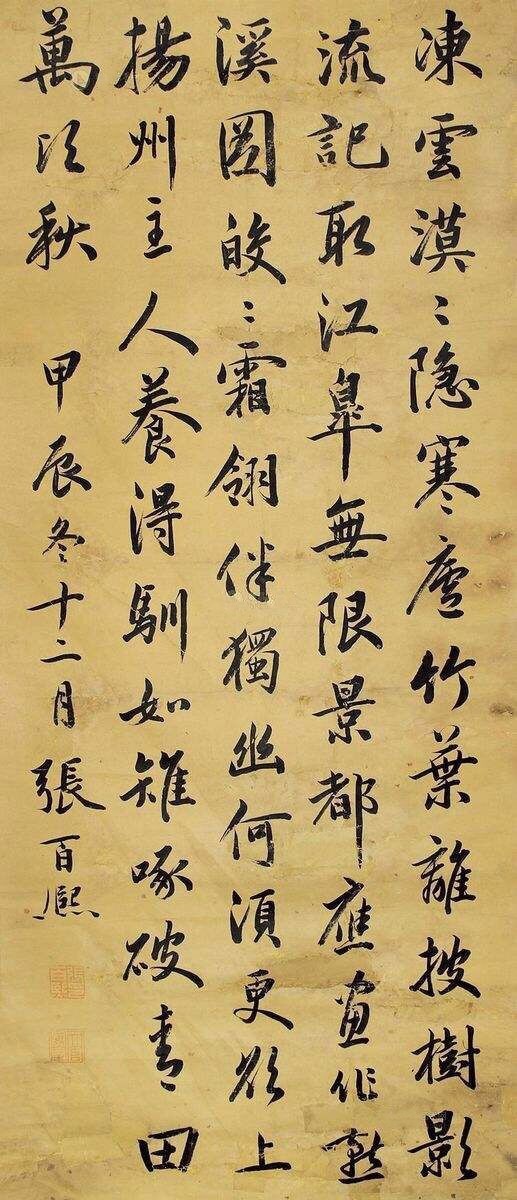 凍雲漠〻隱寒廬竹葉離披樹影
流記取江皋無限景都應畫作
溪圖皎〻霜翎伴獨幽何須更欲上
揚州主人養得馴如雉啄破青田
萬頃秋 甲辰冬十二月張百熙